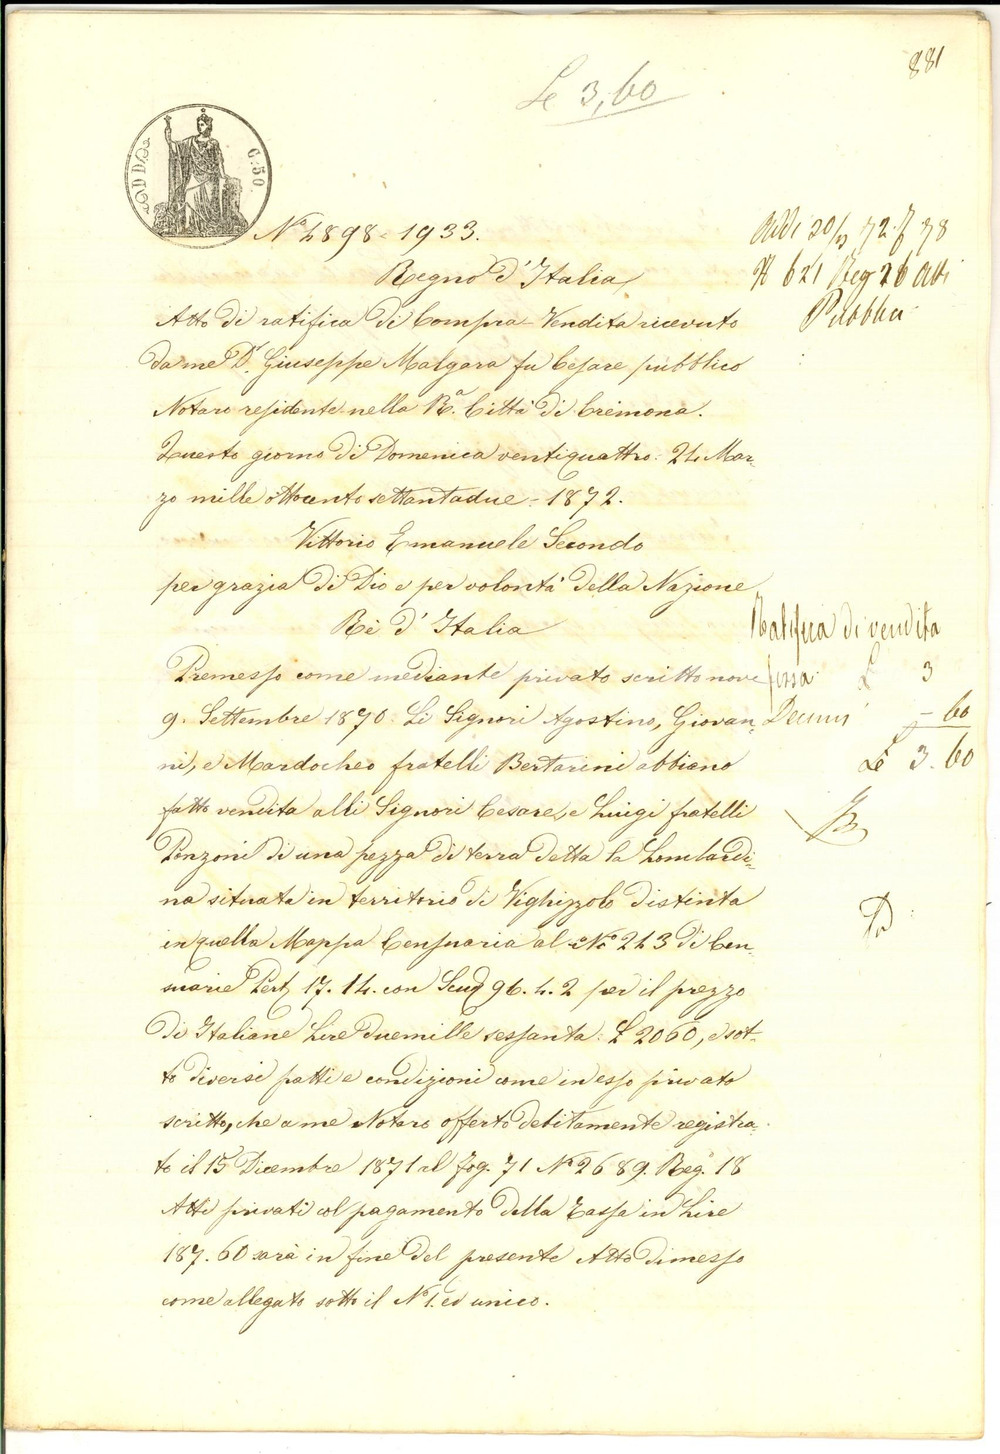 881
Le 3,60
C. 50
No 4898 - 1933.
Regno d'Italia
Atto di ratifica di Compra-Vendita ricevuto
da me Dr. Giuseppe Malgara fu Cesare pubblico
Notaro residente nella Ra. Città di Cremona.
Questo giorno di Domenica ventiquattro. 24 Mar-
zo mille ottocento settantadue - 1872.
Vittorio Emanuele Secondo
per grazia di Dio e per volontà della Nazione
Rè d'Italia
Premesso come mediante privato scritto nove
9. Settembre 1870. Li Signori Agostino, Giovan-
ni, e Mardocheo fratelli Bertarini abbiano
fatto vendita alli Signori Cesare, e Luigi fratelli
Ponzoni di una pezza di terra detta la Lombardi-
na situata in territorio di Vighizzolo distinta
in quella Mappa Censuaria al No 243 di Cen-
suarie Pert. 17. 14. con Scud. 96. 4. 2 per il prezzo
di Italiane Lire duemille sessanta. £ 2060, e sot-
to diversi patti e condizioni come in esso privato
scritto, che a me Notaro offerto debitamente registra-
to il 15 Dicembre 1871 al fog. 71 No 2689. Reg. 18
Atti privati col pagamento della Tassa in Lire
187. 60 sarà in fine del presente Atto dimesso
come allegato sotto il No 1. ed unico.
Addi 20/3 72. f. 78
N 621 Reg 26 Atti
Pubblici
Ratifica di vendita
fissa £ 3
Decimi - 60
Le 3. 60